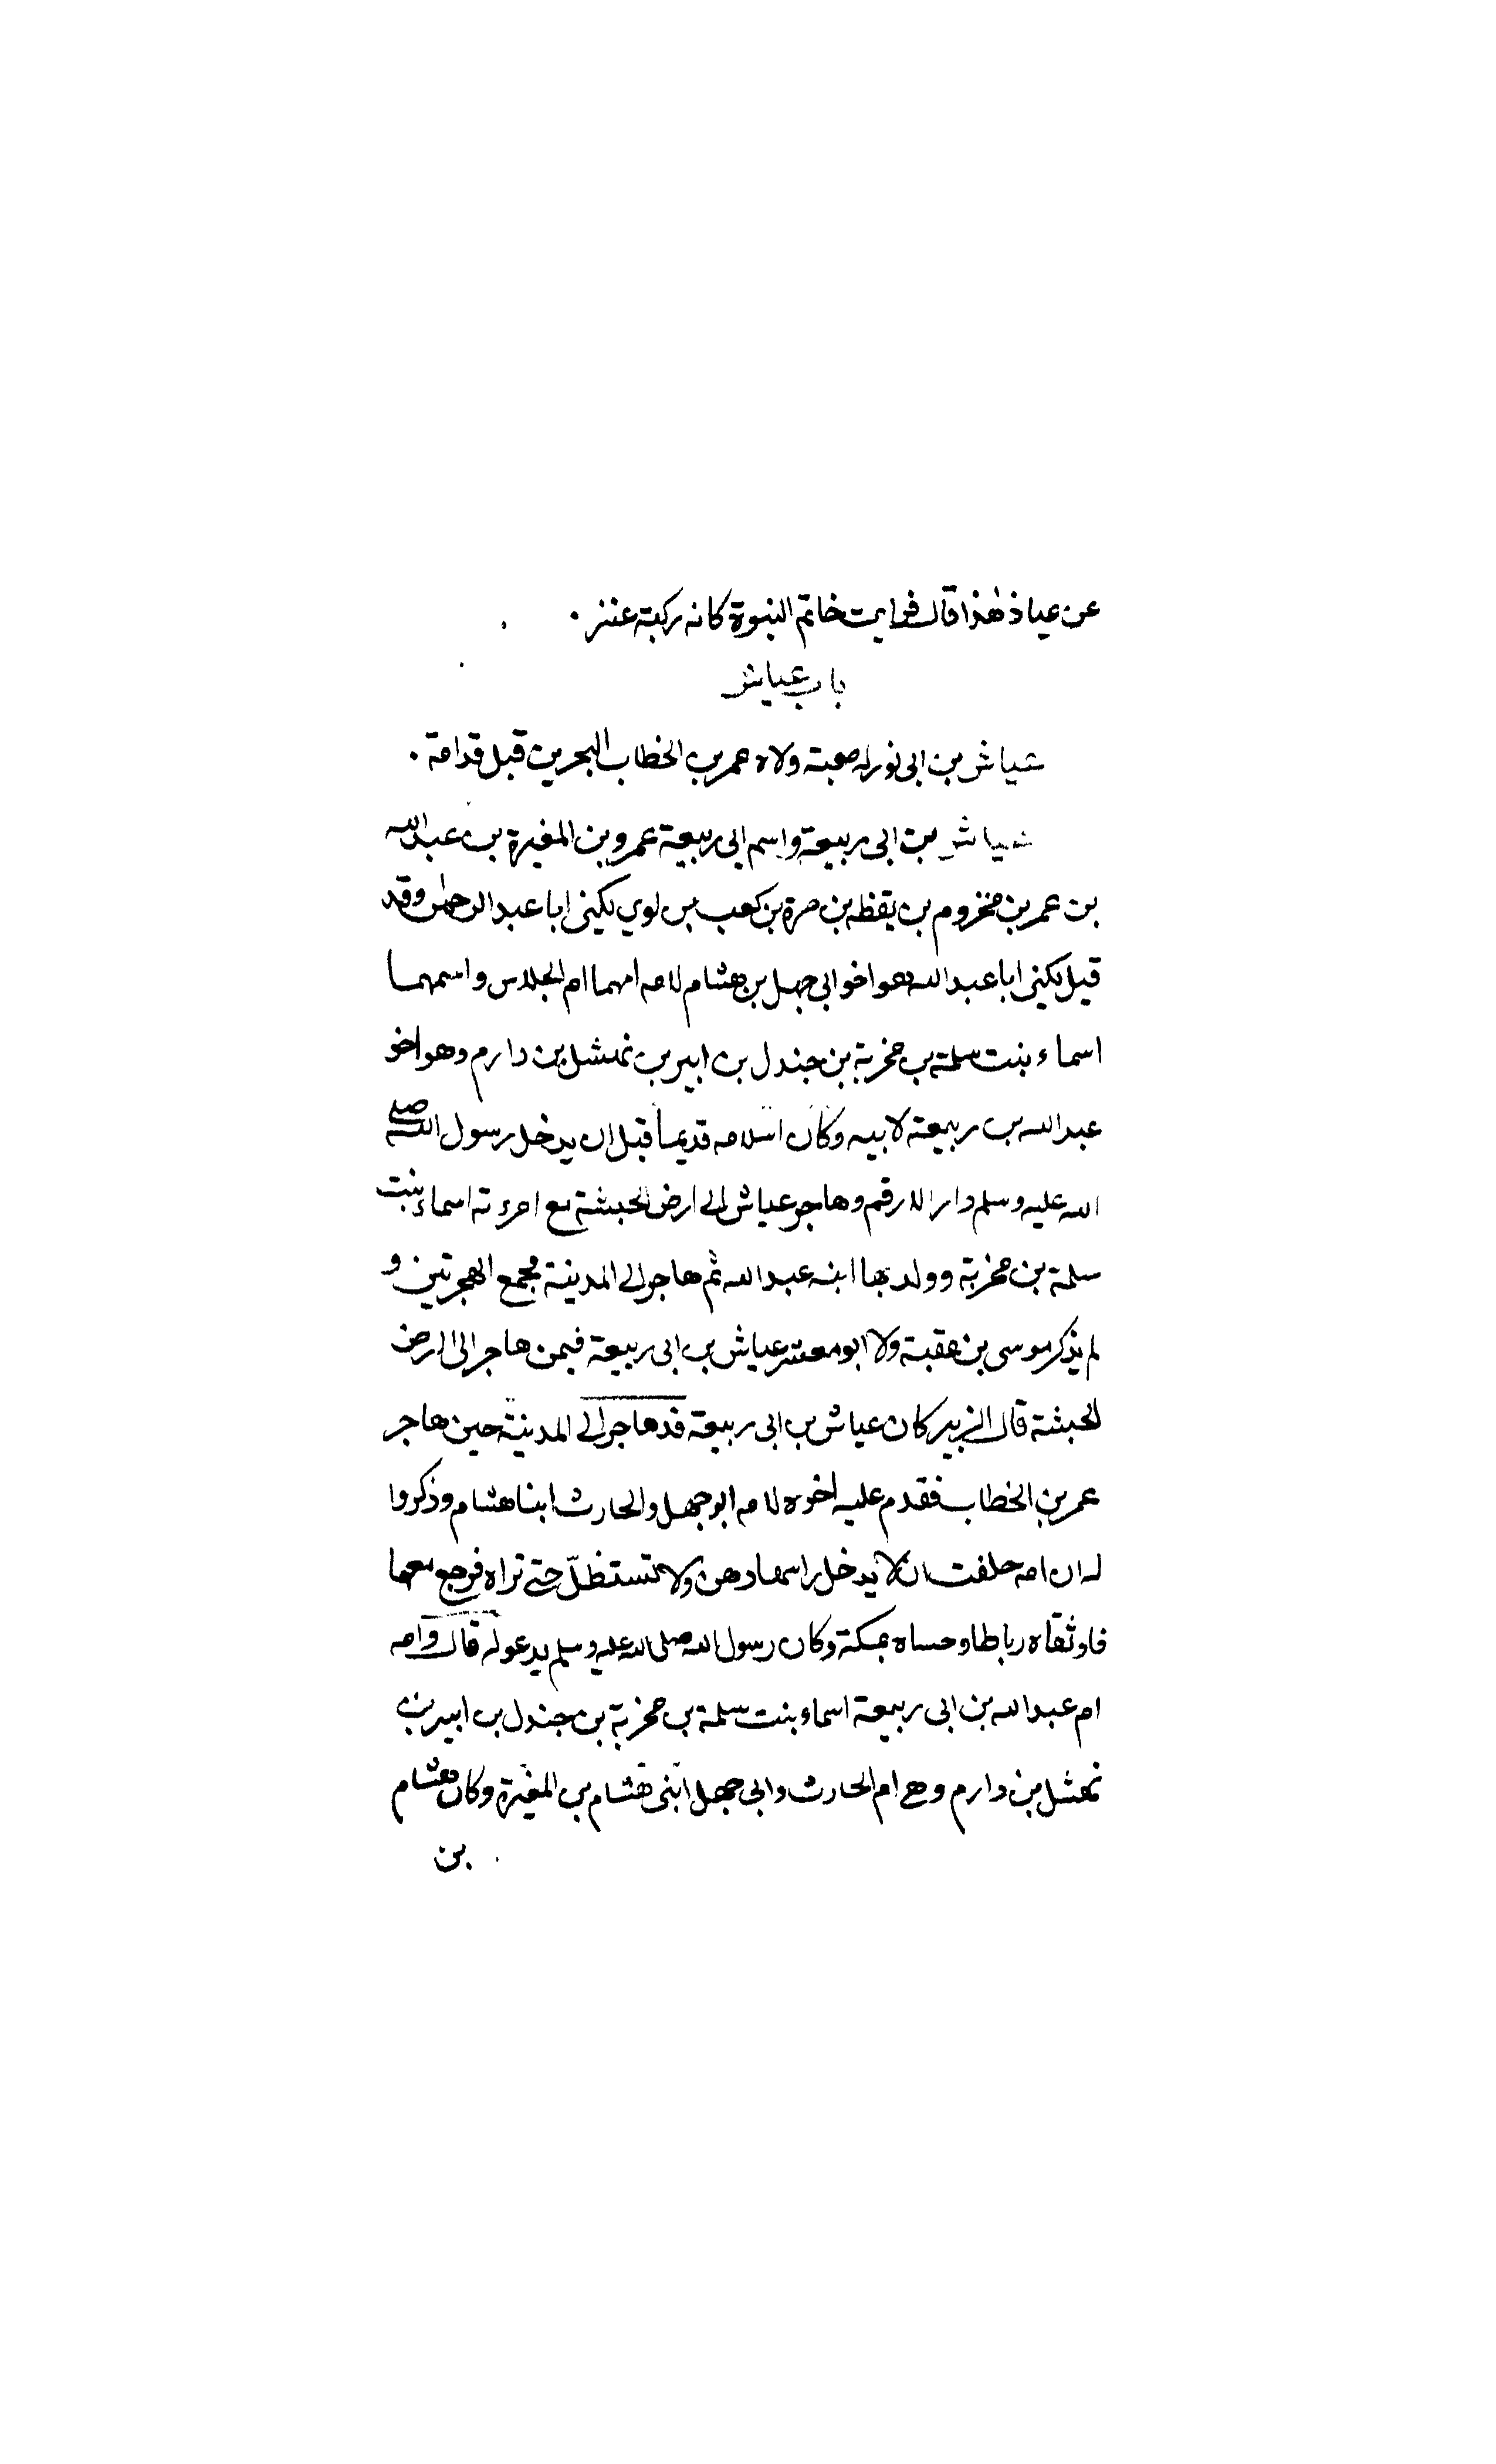 عن عياذ هذا قال فرايت خاتم النبوة كانه ركبة عنز .
باب عياش
عياش بن ابي ثور له صحبة ولاه عمر بن الخطاب البحرين قبل قدامة .
عياش بن ابي ربيعة واسم ابي ربيعة عمرو بن المغيرة بن عبدالله
بن عمر بن مخزوم بن يقظه بن مرة بن كعب بن لوي يكنى ابا عبد الرحمٰن وقد
قيل يكنى ابا عبد الله هو اخو ابي جهل بن هشام لامه امهما ام الجلاس واسمهما
اسماء بنت سلمة بن مخربة بن جندل بن ابير بن نهشل بن دارم وهو اخو
عبد الله بن ربيعة لابيه وكان اسلامه قديما قبل ان يدخل رسول الله صلى
الله عليه وسلم دار الارقم وهاجر عياش الى ارض الحبشة مع امرءته اسماء بنت
سلمة بن مخربة وولد بها ابنه عبد الله ثم هاجر الى المدينة فجمع الهجرتين و
لم يذكر موسى بن عقبة ولا ابو معشر عياش بن ابي ربيعة فيمن هاجر الى ارض
الحبشة قال الزبير كان عياش بن ابي ربيعة قد هاجر الى المدينة حين هاجر
عمر بن الخطاب فقدم عليه اخوه لامه ابو جهل والحارث ابنا هشام وذكروا
له ان امه حلفت ان لا يدخل راسها دهن ولا تستظلّ حتى تراه فرجع معهما
فاوثقاه رباطا وحبساه بمكة وكان رسول الله صلى الله عليه وسلم يدعو له قال وامه
ام عبد الله بن ابي ربيعة اسماء بنت سلمة بن مخربة بن جندل بن ابير بن
نهشل بن دارم وهي ام الحارث وابي جهل ابنى هشام بن المغيرة وكان هشام
بن